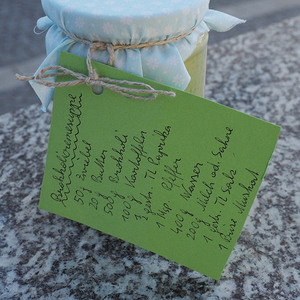 Brokkolicremesuppe
50 g Zwiebel
20 g Butter
500 g Brokkoli
100 g Kartoffeln
2 gestr. TL Paprika
1 Msp. Pfeffer
400 g Wasser
200 g Milch od. Sahne
1 gestr. TL Salz
1 Prise Muskat